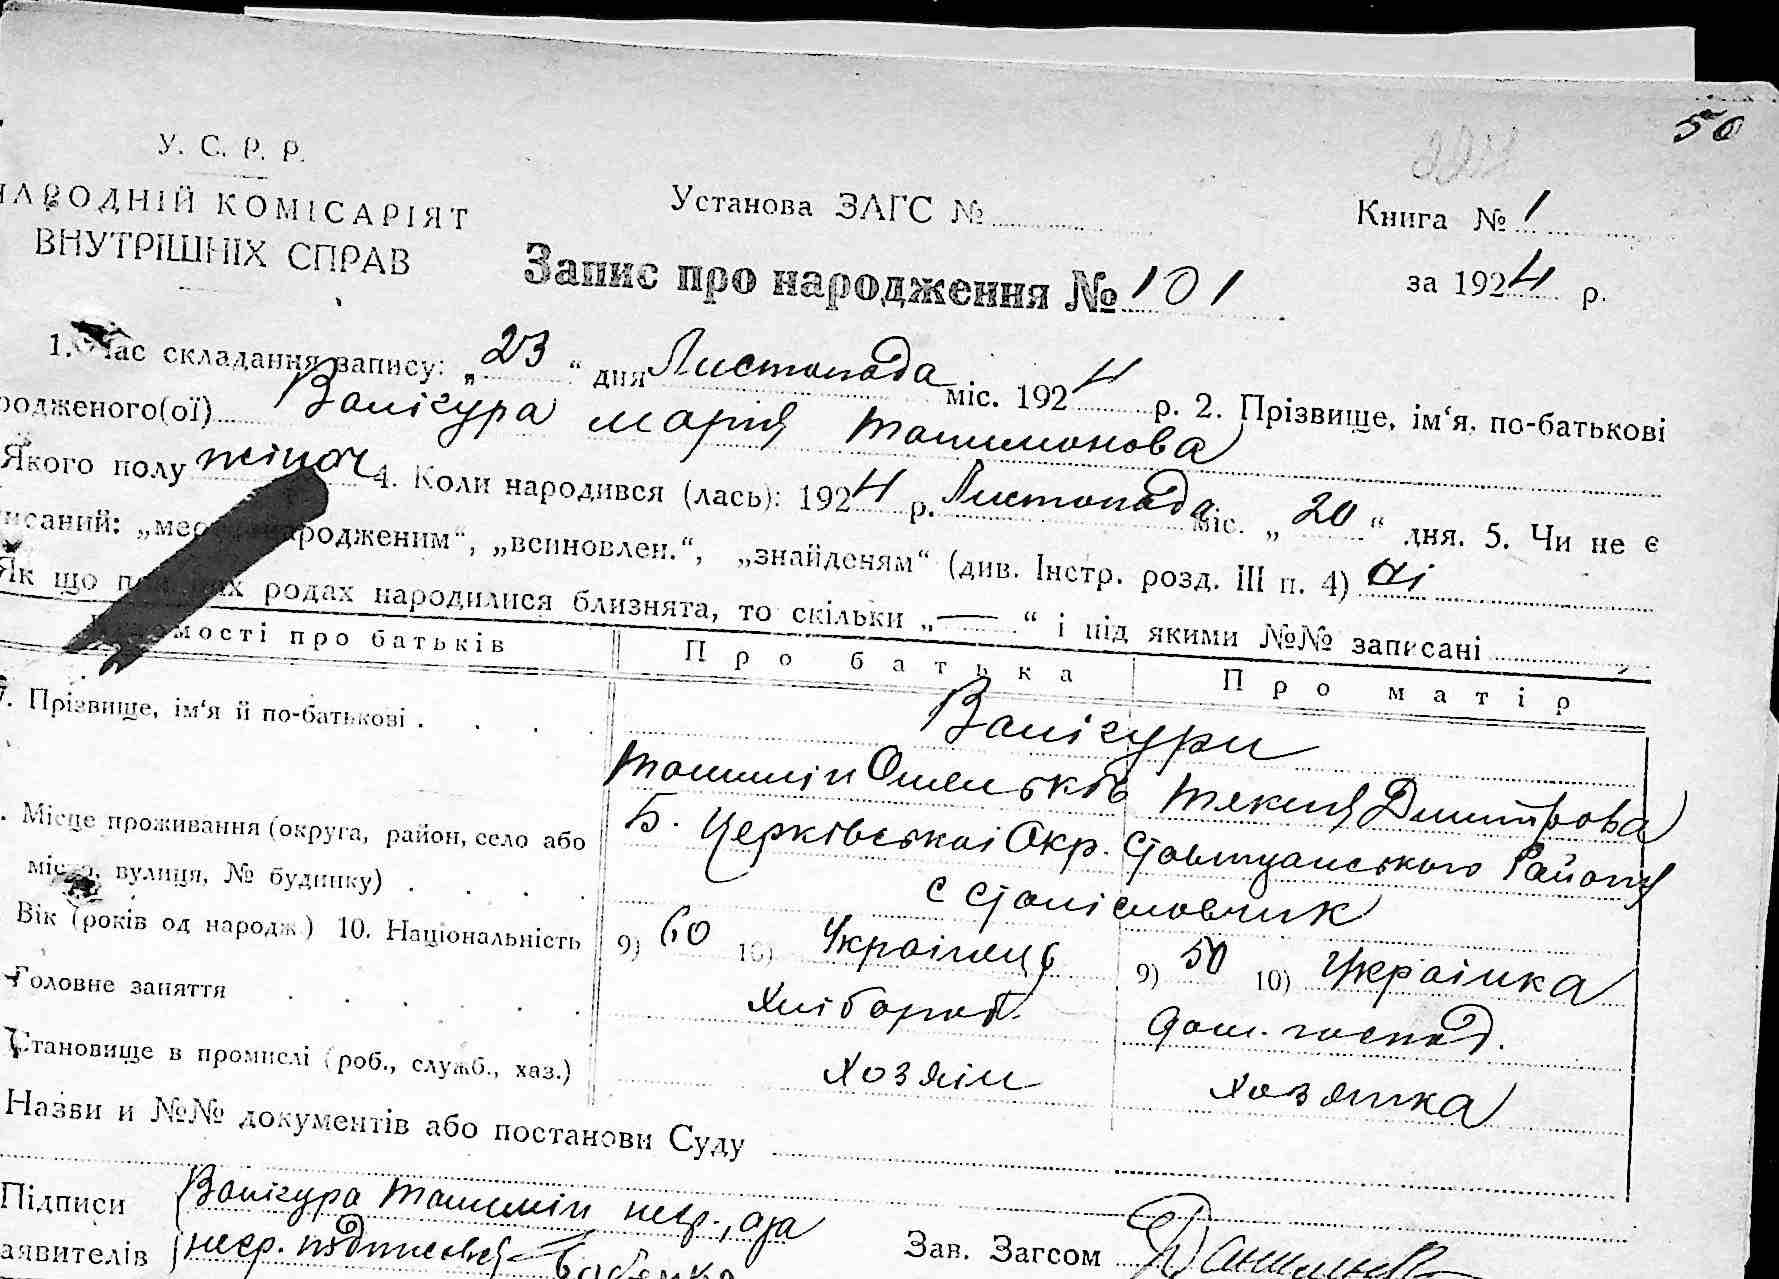 50
У. С. Р. Р.
НАРОДНІЙ КОМІСАРІЯТ
ВНУТРІШНІХ СПРАВ
Установа ЗАГС №
Книга № 1
Запис про народження № 101
за 1924 р.
1. Час складання запису: „23“ дня Листопада міс. 1924 р. 2. Прізвище, ім‘я, по-батькові
родженого(ої) Ванігура Марія
Якого полу жіноч 4. Коли народився (лась): 1924 р. Листопада міс. „20“ дня. 5. Чи не є
исаний: „мер народженим“, „всиновлен.“, „знайденям“ (див. Інстр. розд. III п. 4) ні
Як що при родах народилися близнята, то скільки „—“ і під якими №№ записані
Відомості про батьків
Про батька
Про матір
7. Прізвище, ім‘я й по-батькові
Ванігури
Дмитрова
. Місце проживання (округа, район, село або
місто, вулиця, № будинку)
Б. Церківськоі Окр. Району
с
Вік (років од народж.) 10. Національність
9) 60 10) Украінець
9) 50 10) Украінка
Головне заняття
Хлібороб.
дом. господ.
Становище в промислі (роб., служб., хаз.)
хозяін
хозяйка
Назви и №№ документів або постанови Суду
Підписи
аявителів
Ванігура негр., за
негр. подписався
Зав. Загсом